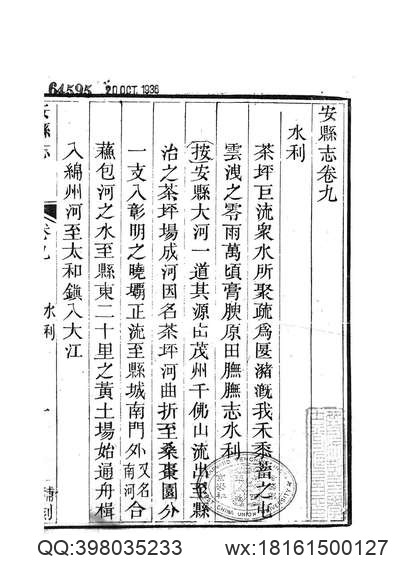 64595 20 OCT. 1936
安縣志卷九
水利
茶坪巨流衆水所聚疏爲匽潴溉我禾黍蓄之屯
雲洩之零雨萬頃膏腴原田膴膴志水利
按安縣大河一道其源出茂州千佛山流出至縣
治之茶坪場成河因名茶坪河曲折至桑棗園分
一支入彰明之曉壩正流至縣城南門外又名南河合
蘓包河之水至縣東二十里之黃土場始通舟楫
入綿州河至太和鎮入大江
安縣志
卷九
水利
一
QQ:398035233
wx:18161500127